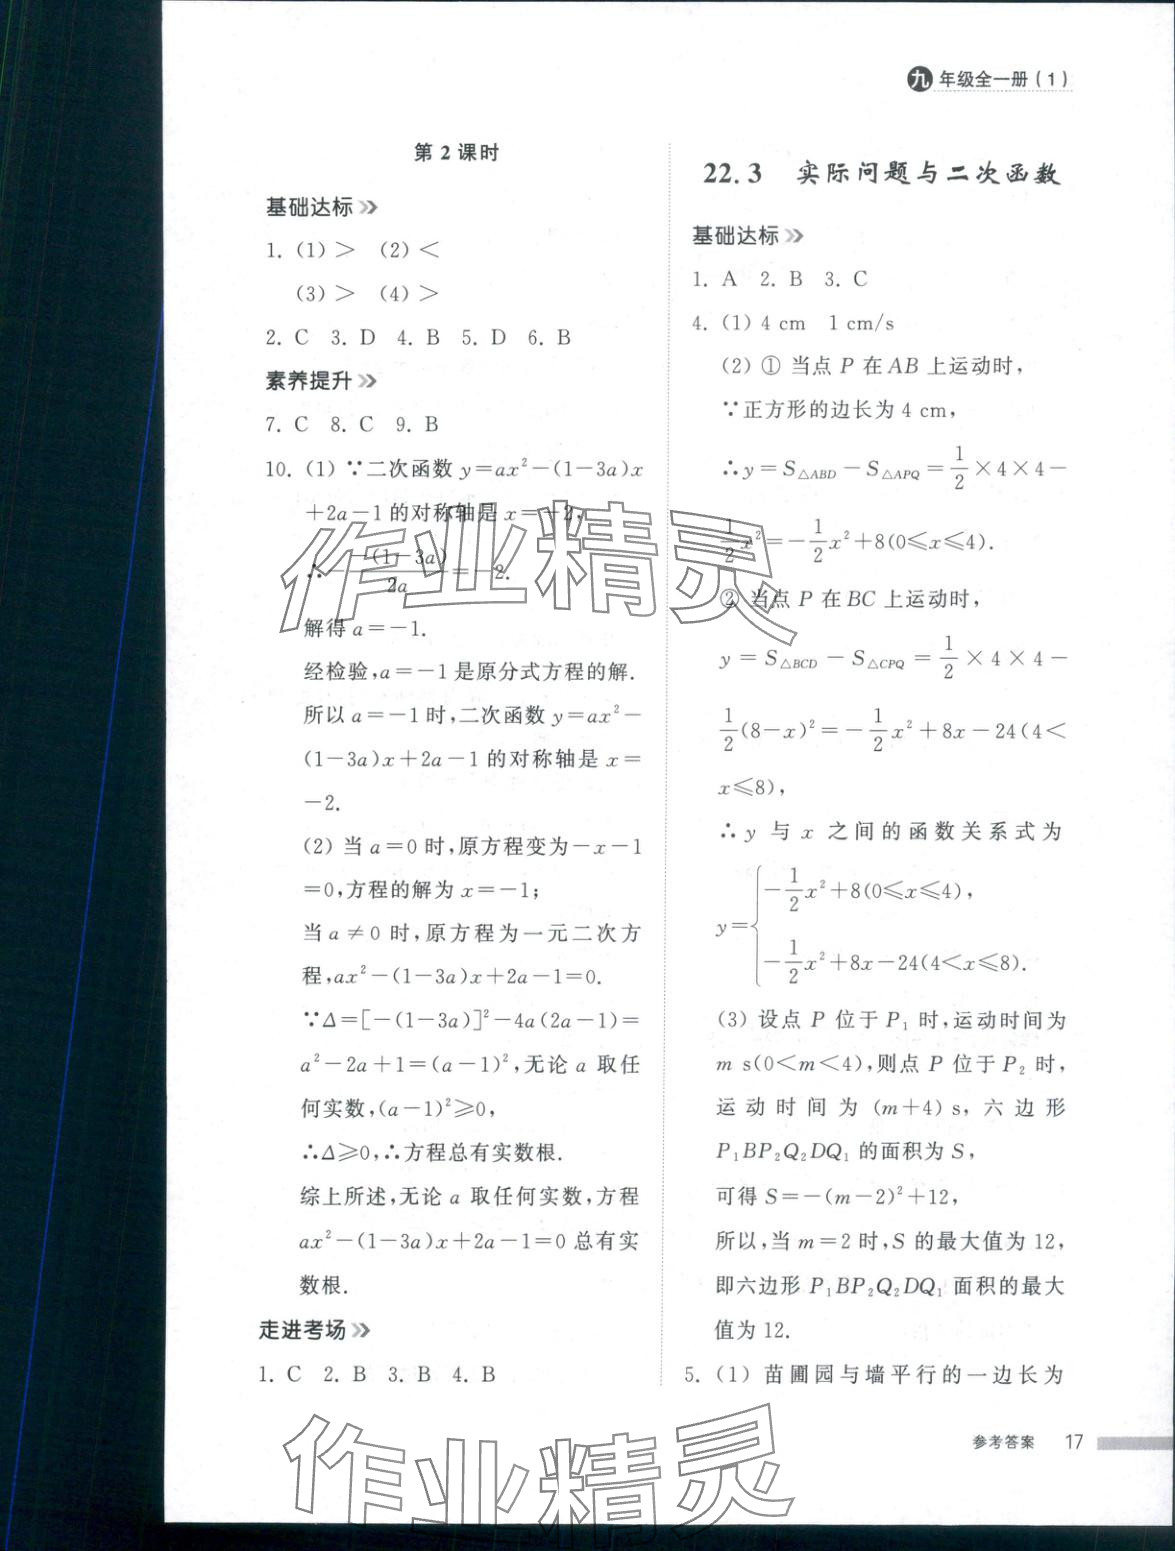 九年级全一册(1)
第2课时
基础达标
1. (1)> (2)<
(3)> (4)>
2. C 3. D 4. B 5. D 6. B
素养提升
7. C 8. C 9. B
10. (1) ∵二次函数 y=ax²-(1-3a)x
+2a-1 的对称轴是 x=-2,
∴ - -(1-3a)/2a = -2.
解得 a=-1.
经检验,a=-1 是原分式方程的解.
所以 a=-1 时,二次函数 y=ax²-
(1-3a)x+2a-1 的对称轴是 x=
-2.
(2) 当 a=0 时,原方程变为-x-1
=0,方程的解为 x=-1;
当 a≠0 时,原方程为一元二次方
程,ax²-(1-3a)x+2a-1=0.
∵Δ=[-(1-3a)]²-4a(2a-1)=
a²-2a+1=(a-1)²,无论 a 取任
何实数,(a-1)²≥0,
∴Δ≥0,∴方程总有实数根.
综上所述,无论 a 取任何实数,方程
ax²-(1-3a)x+2a-1=0 总有实
数根.
走进考场
1. C 2. B 3. B 4. B
22.3 实际问题与二次函数
基础达标
1. A 2. B 3. C
4. (1) 4 cm 1 cm/s
(2) ① 当点 P 在 AB 上运动时,
∵正方形的边长为 4 cm,
∴y=S△ABD-S△APQ=1/2×4×4-
1/2x²=-1/2x²+8(0≤x≤4).
② 当点 P 在 BC 上运动时,
y=S△BCD-S△CPQ=1/2×4×4-
1/2(8-x)²=-1/2x²+8x-24(4<
x≤8),
∴ y 与 x 之间的函数关系式为
y={-1/2x²+8(0≤x≤4),
-1/2x²+8x-24(4<x≤8).
(3) 设点 P 位于 P₁ 时,运动时间为
m s(0<m<4),则点 P 位于 P₂ 时,
运动时间为 (m+4) s,六边形
P₁BP₂Q₂DQ₁ 的面积为 S,
可得 S=-(m-2)²+12,
所以,当 m=2 时,S 的最大值为 12,
即六边形 P₁BP₂Q₂DQ₁ 面积的最大
值为 12.
5. (1) 苗圃园与墙平行的一边长为
参考答案 17
作业精灵
作业精灵